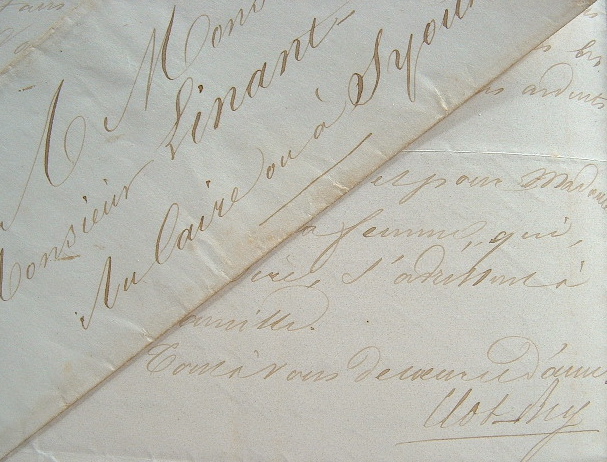 A Mons
Monsieur Linant
Au Caire ou à Syout
ardents
et pour Madame
femme, qui,
s'adressent à
famille.
Tout à vous de coeur et d'ame
Clot Bey